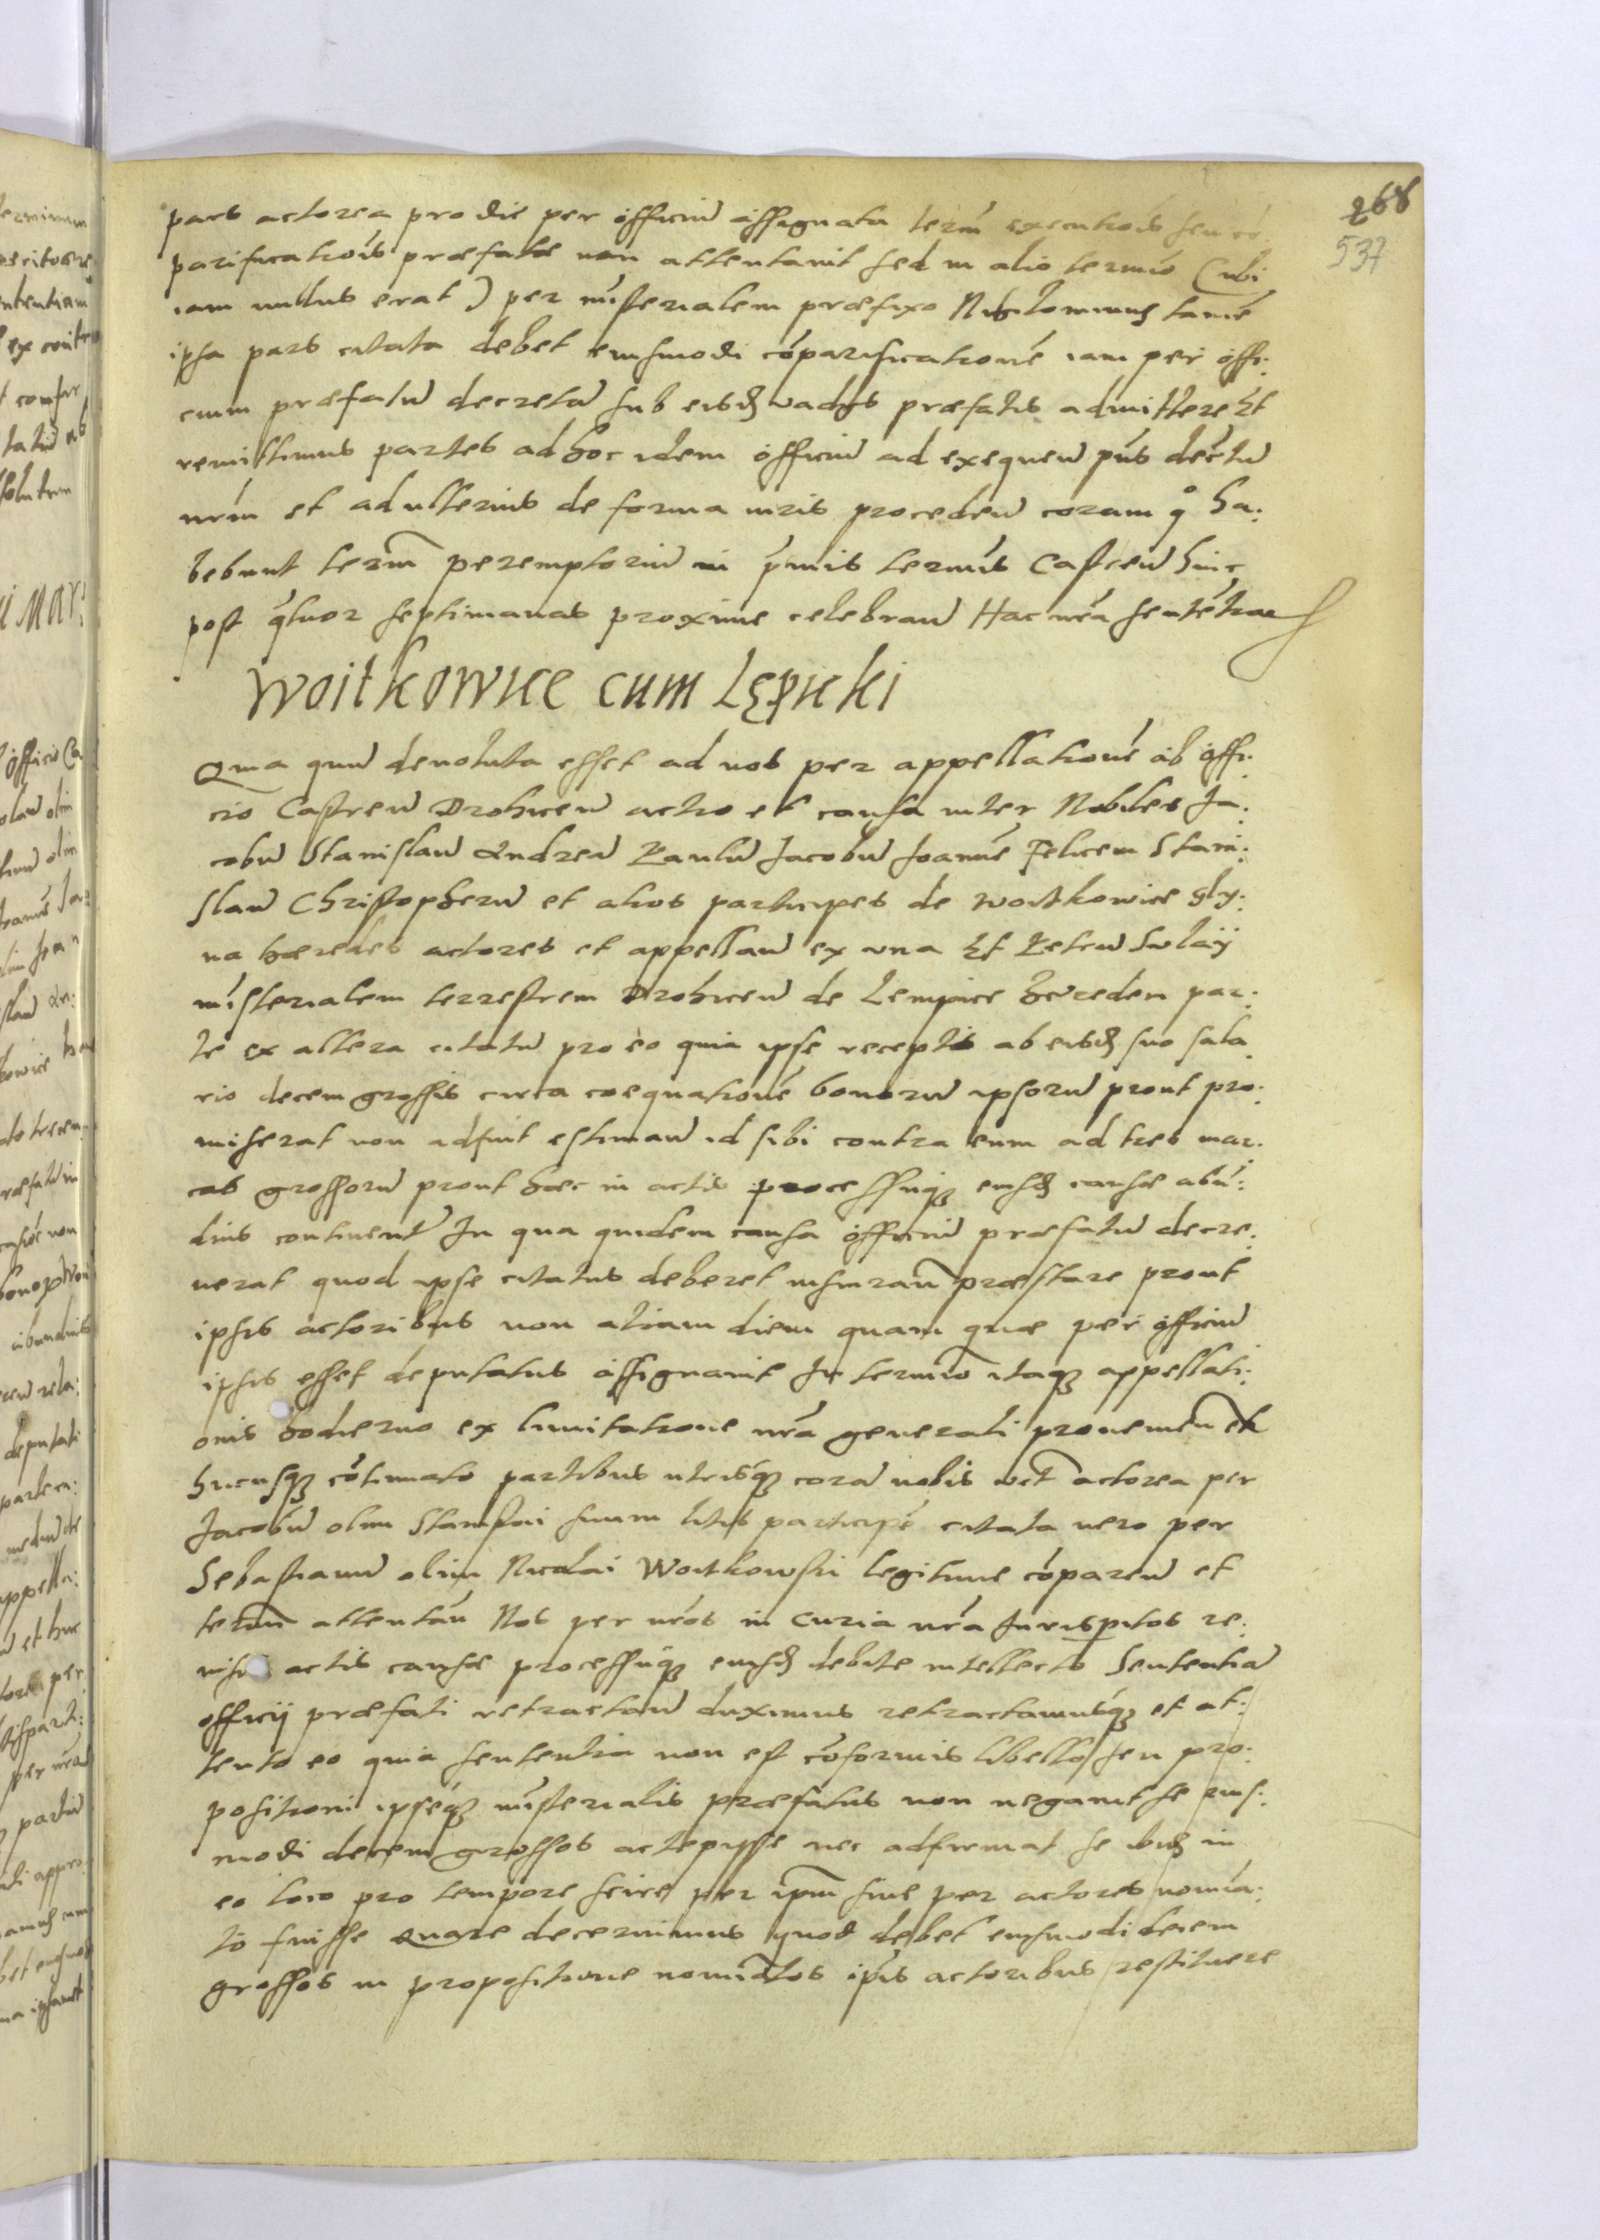 268
537
pars actorea pro die per officiu assignatu term executiois seu co
parificatiois præfatæ non attentavit sed in alio termio (ubi
iam nullus erat) per mĩsterialem præfixo Nihilominus tamẽ
ipsa pars citata debet eiusmodi cõparificationẽ iam per offi:
cium præfatu decreta sub eisdẽ vadiis præfatis admittere Et
remissimus partes ad hoc idem officiu ad exequeñ pñs decrtu
nrm et ad ulterius de forma iuris procedeñ coram qo ha:
bebunt term peremptoriu in pmis termis Castreñ hinc
post qtuor septimanas proxime celebrañ Hac nrã sentẽtia
Woitkowice cum Lępicki
Quia quu devoluta esset ad nos per appellationẽ ab offi:
cio Castreñ Drohiceñ actio et causa inter Nobiles Ja:
cobu Stanislau Andreã Paulu Jacobu Joannẽ Felicem Stani:
slau Christopheru et alios participes de Woitkowice gly:
na hæredes actores et appellañ ex una Et Petru
mĩsterialem terrestrem Drohiceñ de Lempice hæredem par:
te ex altera citatu pro eo quia ipse receptis ab eisdẽ suo sala
rio decem grossis circa coequationẽ bonoru ipsoru prout pro:
miserat non adfuit estimañ id sibi contra eum ad tres mar:
cas grossoru prout hæc in actis processuq eiusdẽ causæ abũ:
dius continentr In qua quidem causa officiu præfatu decre:
verat quod ipse citatus deberet iusiurañ præstare prout
ipsis actoribus non aliam diem quam quæ per officiu
ipsis esset deputatus assignavit In termio itaq appellati:
onis hodierno ex limitatione nrã generali provenieñ et
hucusq cõtinuato partibus utrisq corã nobis vt actorea per
Jacobu olim Stanislai suum litis participẽ citata vero per
Sebastianu olim Nicolai Woitkowski legitime cõpareñ et
termi attentañ Nos per nrõs in Curia nrã Jurisperitos re:
visis actis causæ processuq eiusdẽ debite intellecto Sententiã
officij præfati retractañ duximus retractamusq et at:
tento eo quia sententia non est cõformis libello seu pro:
positioni ipseq mĩsterialis præfatus non negavit se eius:
modi decem grossos accepisse nec adfirmat se ibidẽ in
eo loco pro tempore scire per ipm sive per actores nomia:
to fuisse Quare decernimus quod debet eiusmodi decem
grossos in propositione nomiatos ipis actoribus restituere